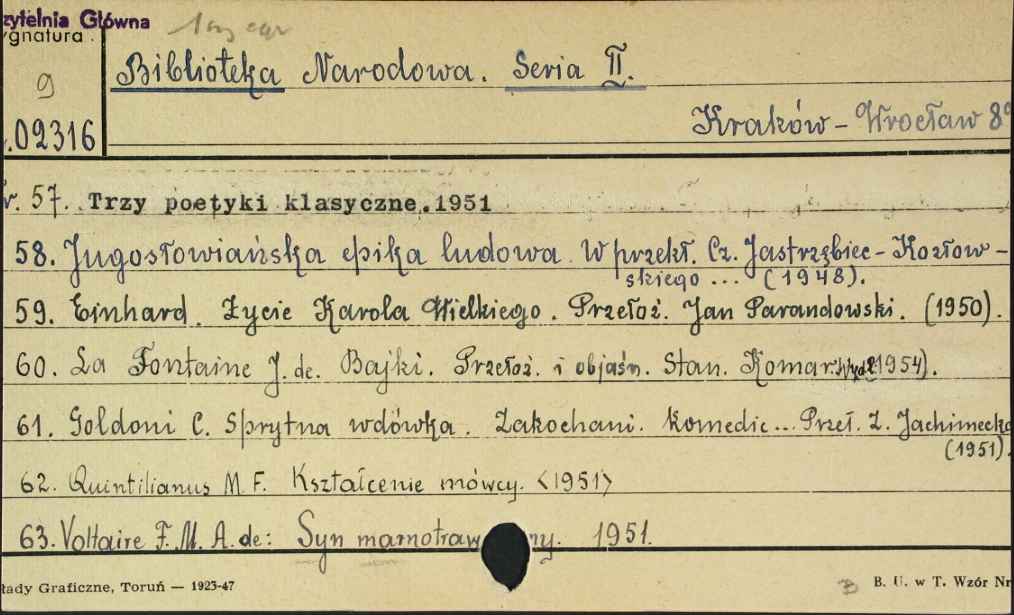 zytelnia Główna
ygnatura.
g
Biblioteka Narodowa. Seria II.
Kraków - Wrocław 8°
.02316
r. 57. Trzy poetyki klasyczne.1951
58. Jugosłowiańska epika ludowa. W przekł. Cz. Jastrzębiec-Kozłow-
skiego ... (1948).
59. Einhard. Życie Karola Wielkiego. Przełoż. Jan Parandowski. (1950).
60. La Fontaine J. de. Bajki. Przełoż. i objaśn. Stan. Komar. Wyd 2 1954).
61. Goldoni C. Sprytna wdówka. Zakochani. Komedie... Przeł. Z. Jachimecka
(1951).
62. Quintilianus M. F. Kształcenie mówcy. <1951>
63. Voltaire F. M. A. de: Syn marnotraw ny. 1951.
łady Graficzne, Toruń — 1923-47
B
B. U. w T. Wzór Nr